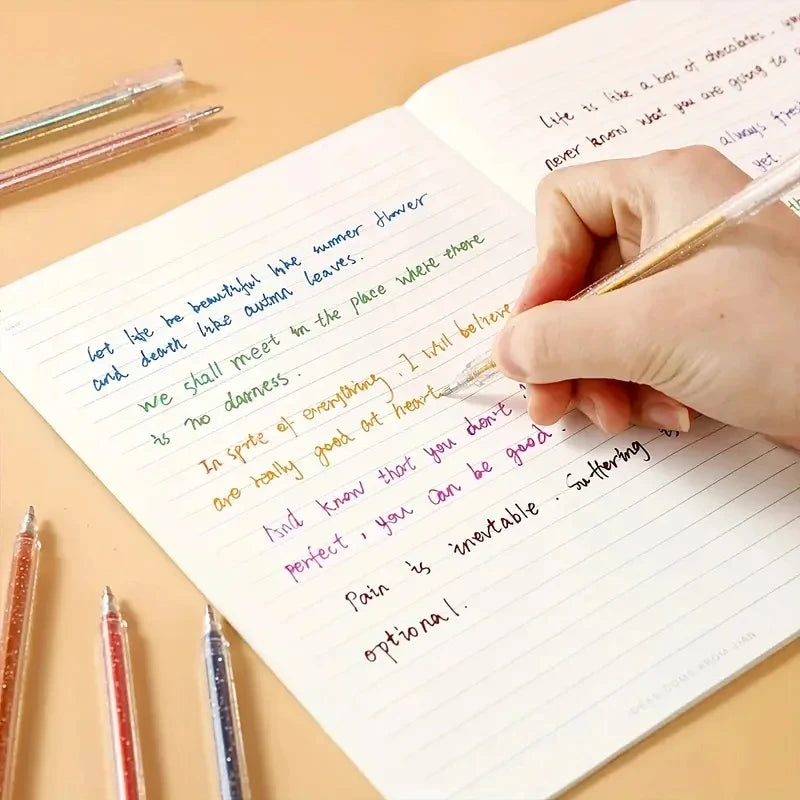 Let life be beautiful like summer flower
and death like autmn leaves.
we shall meet in the place where there
is no darness.
In sprte of everything, I will believe
are really good at heart
And know that you don't
perfect, you can be good.
Pain is inevtable. Suffering is
optional.
Life is like a box of chocolates. you
never know what you are going to
always
yet